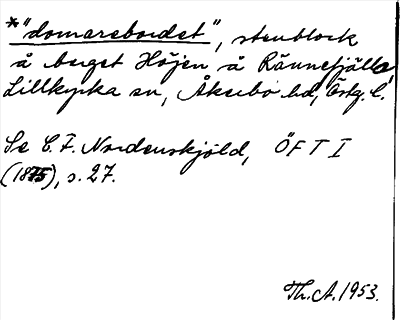 *"domarebordet", stenblock
å berget Höjen å Rännefjälla,
Lillkyrka sn, Åkerbo hd, Östg. l.
Se C. F. Nordenskjöld, ÖFT I
(1875), s. 27.
Th. A. 1953.